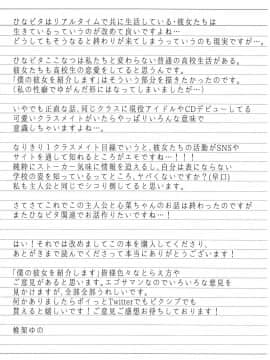 ひなビタはリアルタイムで共に生活している・彼女たちは
生きているっていうのが改めて良いですよね…
どうしてもそうなると終わりが来てしまうっていうのも現実ですが…。
ひなビタここなつは私たちと変わらない普通の高校生活がある。
彼女たちも高校生の恋愛をしてると思うんです。
「僕の彼女を紹介します」はそういう部分を描きたかったのです。
（私の性癖でゆがんだ形にはなってしまいましたが…）
いやでも正直な話、同じクラスに現役アイドルやCDデビューしてる
可愛いクラスメイトがいたらやっぱりいろんな意味で
意識しちゃいますよね…。
なりきり１クラスメイト目線でいうと、彼女たちの活動がSNSや
サイトを通して知れるところがエモですね…！！！
純粋にストーカー気味に情報を追えるし、自分は表にならない
学校の姿を知っているってところ、ヤバくないですか？(早口)
私も主人公と同じでシコり倒してると思います。
さてさてこれでこの主人公と心菜ちゃんのお話は終わったのですが
またひなビタ関連でお話作りたいですね…！
はい！それでは改めましてこの本を購入してくださり、
あとがきまで読んでくださって本当にありがとうございます！
「僕の彼女を紹介します」皆様色々なとらえ方や
ご意見があると思います。エゴサマンなのでいろいろな意見を
見かけますが、全部全部うれしいです。
何かありましたらポイっとTwitterでもピクシブでも
貰えると嬉しいです！ご意見ご感想お待ちしております！
椎架ゆの